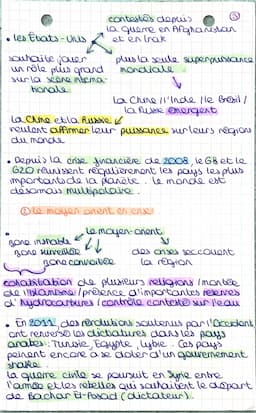 contestés depuis
la guerre en Afghanistan
et en Irak
③
• les États-Unis
souhaite jouer
un rôle plus grand
sur la scène inter-
nationale
plus la seule superpuissance
mondiale
la Chine / l'Inde / le Brésil /
la Russie émergent
la Chine et la Russie
veulent affirmer leur puissance sur leurs régions
du monde
• Depuis la crise financière de 2008, le G8 et le
G20 réunissent régulièrement les pays les plus
importants de la planète. le monde est
désormais multipolaire.
② le moyen orient en crise
• le moyen-orient
zone instable
zone surveillée
zone convoitée
des crises secouent
la région
cohabitation de plusieurs religions / montée
de l'islamisme / présence d'importantes réserves
d'hydrocarbures / contrôle contesté sur l'eau
• En 2011, des révolutions soutenus par l'Occident
ont renversé les dictatures dans les pays
arabes : Tunisie, Egypte, Lybie. Ces pays
peinent encore à se doter d'un gouvernement
stable.
la guerre civile se poursuit en Syrie entre
l'armée et les rebelles qui souhaitent le départ
de Bachar El-Assad (dictateur).